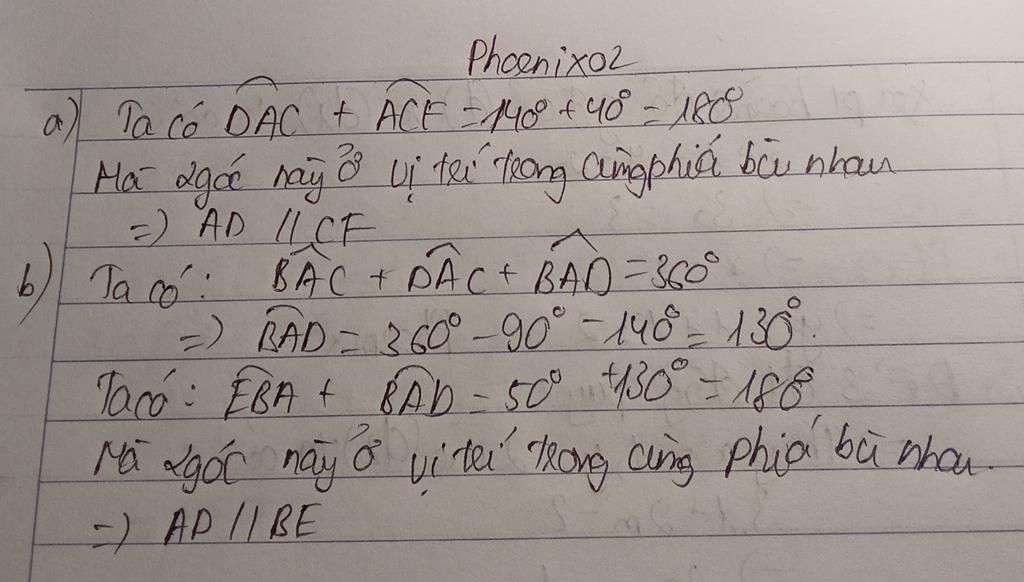 Phoenix02
a) Ta có DAC + ACF = 140° + 40° = 180°
Mà 2 góc này ở vị trí trong cùng phiá bù nhau
=) AD // CF
b) Ta có: BAC + DAC + BAD = 360°
=) BAD = 360° - 90° - 140° = 130°.
Ta có: EBA + BAD = 50° + 130° = 180°
Mà 2 góc này ở vị trí trong cùng phiá bù nhau.
=) AD // BE